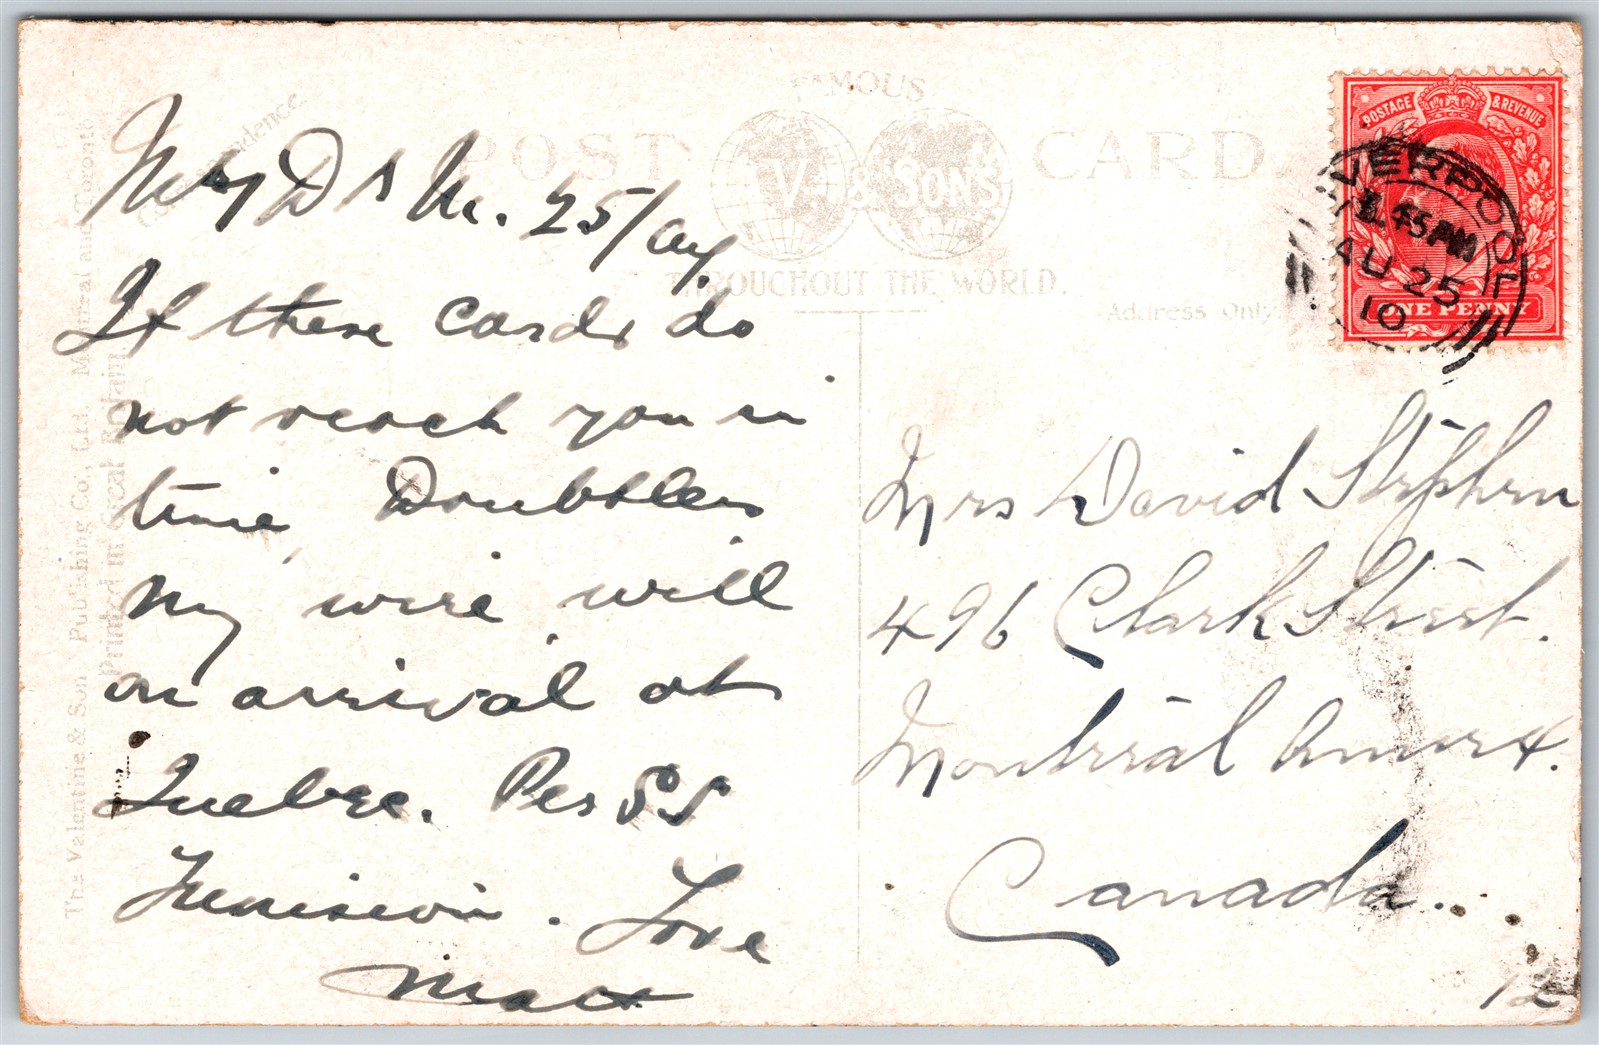 Correspondence
FAMOUS
POST CARD.
V. & SONS
THROUGHOUT THE WORLD.
Address Only.
The Valentine & Sons Publishing Co., Ltd. Montreal and Toronto
Printed in Great Britain
My D 25/
If these cards do
not reach you in
time, Doubtless
my wire, will
on arrival at
Quebec. Per SS
Love
Matt
POSTAGE & REVENUE
ONE PENNY
LIVERPOOL
.45 PM
AU 25
10
Mrs David Stephen
496 Clark Street.
Montreal
Canada..
12